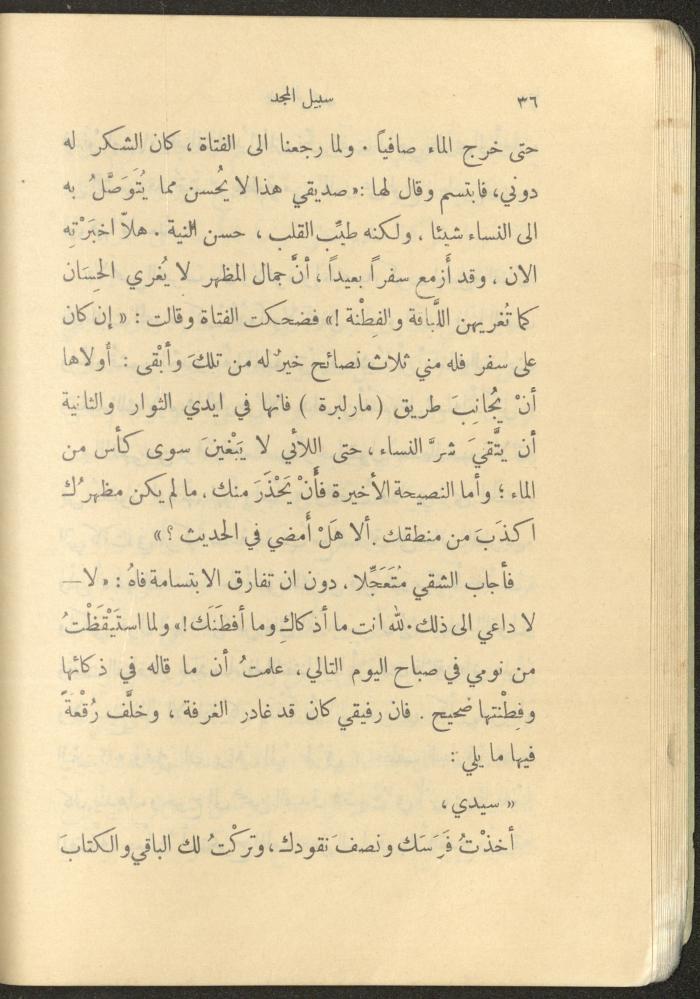 ٣٦ سبيل المجد
حتى خرج الماء صافياً . ولما رجعنا الى الفتاة ، كان الشكر له
دوني، فابتسم وقال لها :« صديقي هذا لا يُحسن مما يُتَوَصَّلُ به
الى النساء شيئا ، ولكنه طيِّب القلب ، حسن النية . هلاّ اخبَرْتِه
الان ، وقد أَزمع سفراً بعيداً ، أنَّ جمال المظهر لا يُغري الحِسَان
كما تُغريهن اللَّباقة والفِطْنة !» فضحكت الفتاة وقالت : « إن كان
على سفر فله مني ثلاث نصائح خيرٌ له من تلكَ وأَبْقى : أولاها
أنْ يُجانِبَ طريق ( مارلبرة ) فانها في ايدي الثوار والثانية
أن يتَّقيَ شرَّ النساء ، حتى اللائي لا يَبْغينَ سوى كأس من
الماء ؛ وأما النصيحة الأخيرة فأَنْ يَحْذَرَ منك ، ما لم يكن مظهرُك
اكذَبَ من منطقك . ألا هَلْ أَمضي في الحديث ؟ »
فأجاب الشقي مُتَعَجِّلا ، دون ان تفارق الابتسامة فاهُ : « لا —
لا داعي الى ذلك . لله انت ما أذكاكِ وما أفطَنَك !» ولما استَيْقَظْتُ
من نومي في صباح اليوم التالي ، علمتُ أن ما قاله في ذكائها
وفِطْنتها صحيح . فان رفيقي كان قد غادر الغرفة ، وخلَّف رُقْعَةً
فيها ما يلي :
« سيدي ،
أخذْتُ فَرَسَك ونصفَ نقودك ، وتركْتُ لك الباقي والكتابَ